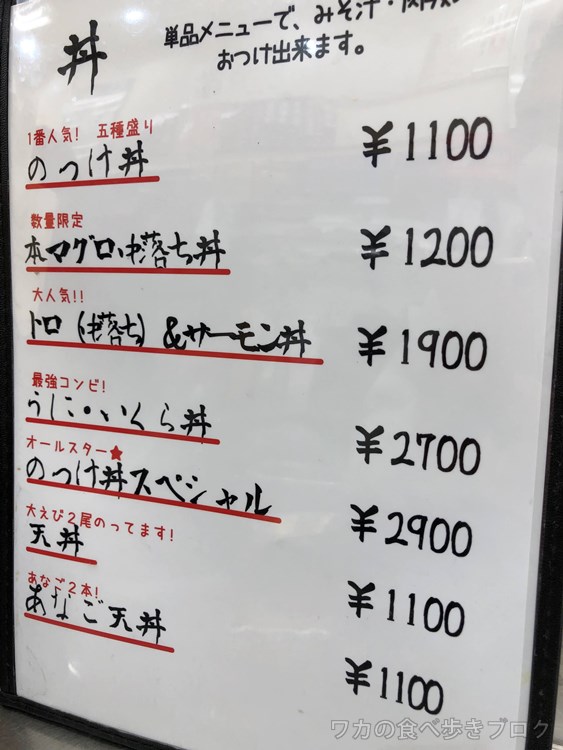 丼
単品メニューで、みそ汁・
おつけ出来ます。
1番人気! 五種盛り
のっけ丼 ¥1100
数量限定
本マグロ中落ち丼 ¥1200
大人気!!
トロ(中落ち)&サーモン丼 ¥1900
最強コンビ!
うに・いくら丼 ¥2700
オールスター★
のっけ丼スペシャル ¥2900
大えび2尾のってます!
天丼 ¥1100
あなご2本!
あなご天丼 ¥1100
ワカの食べ歩きブログ